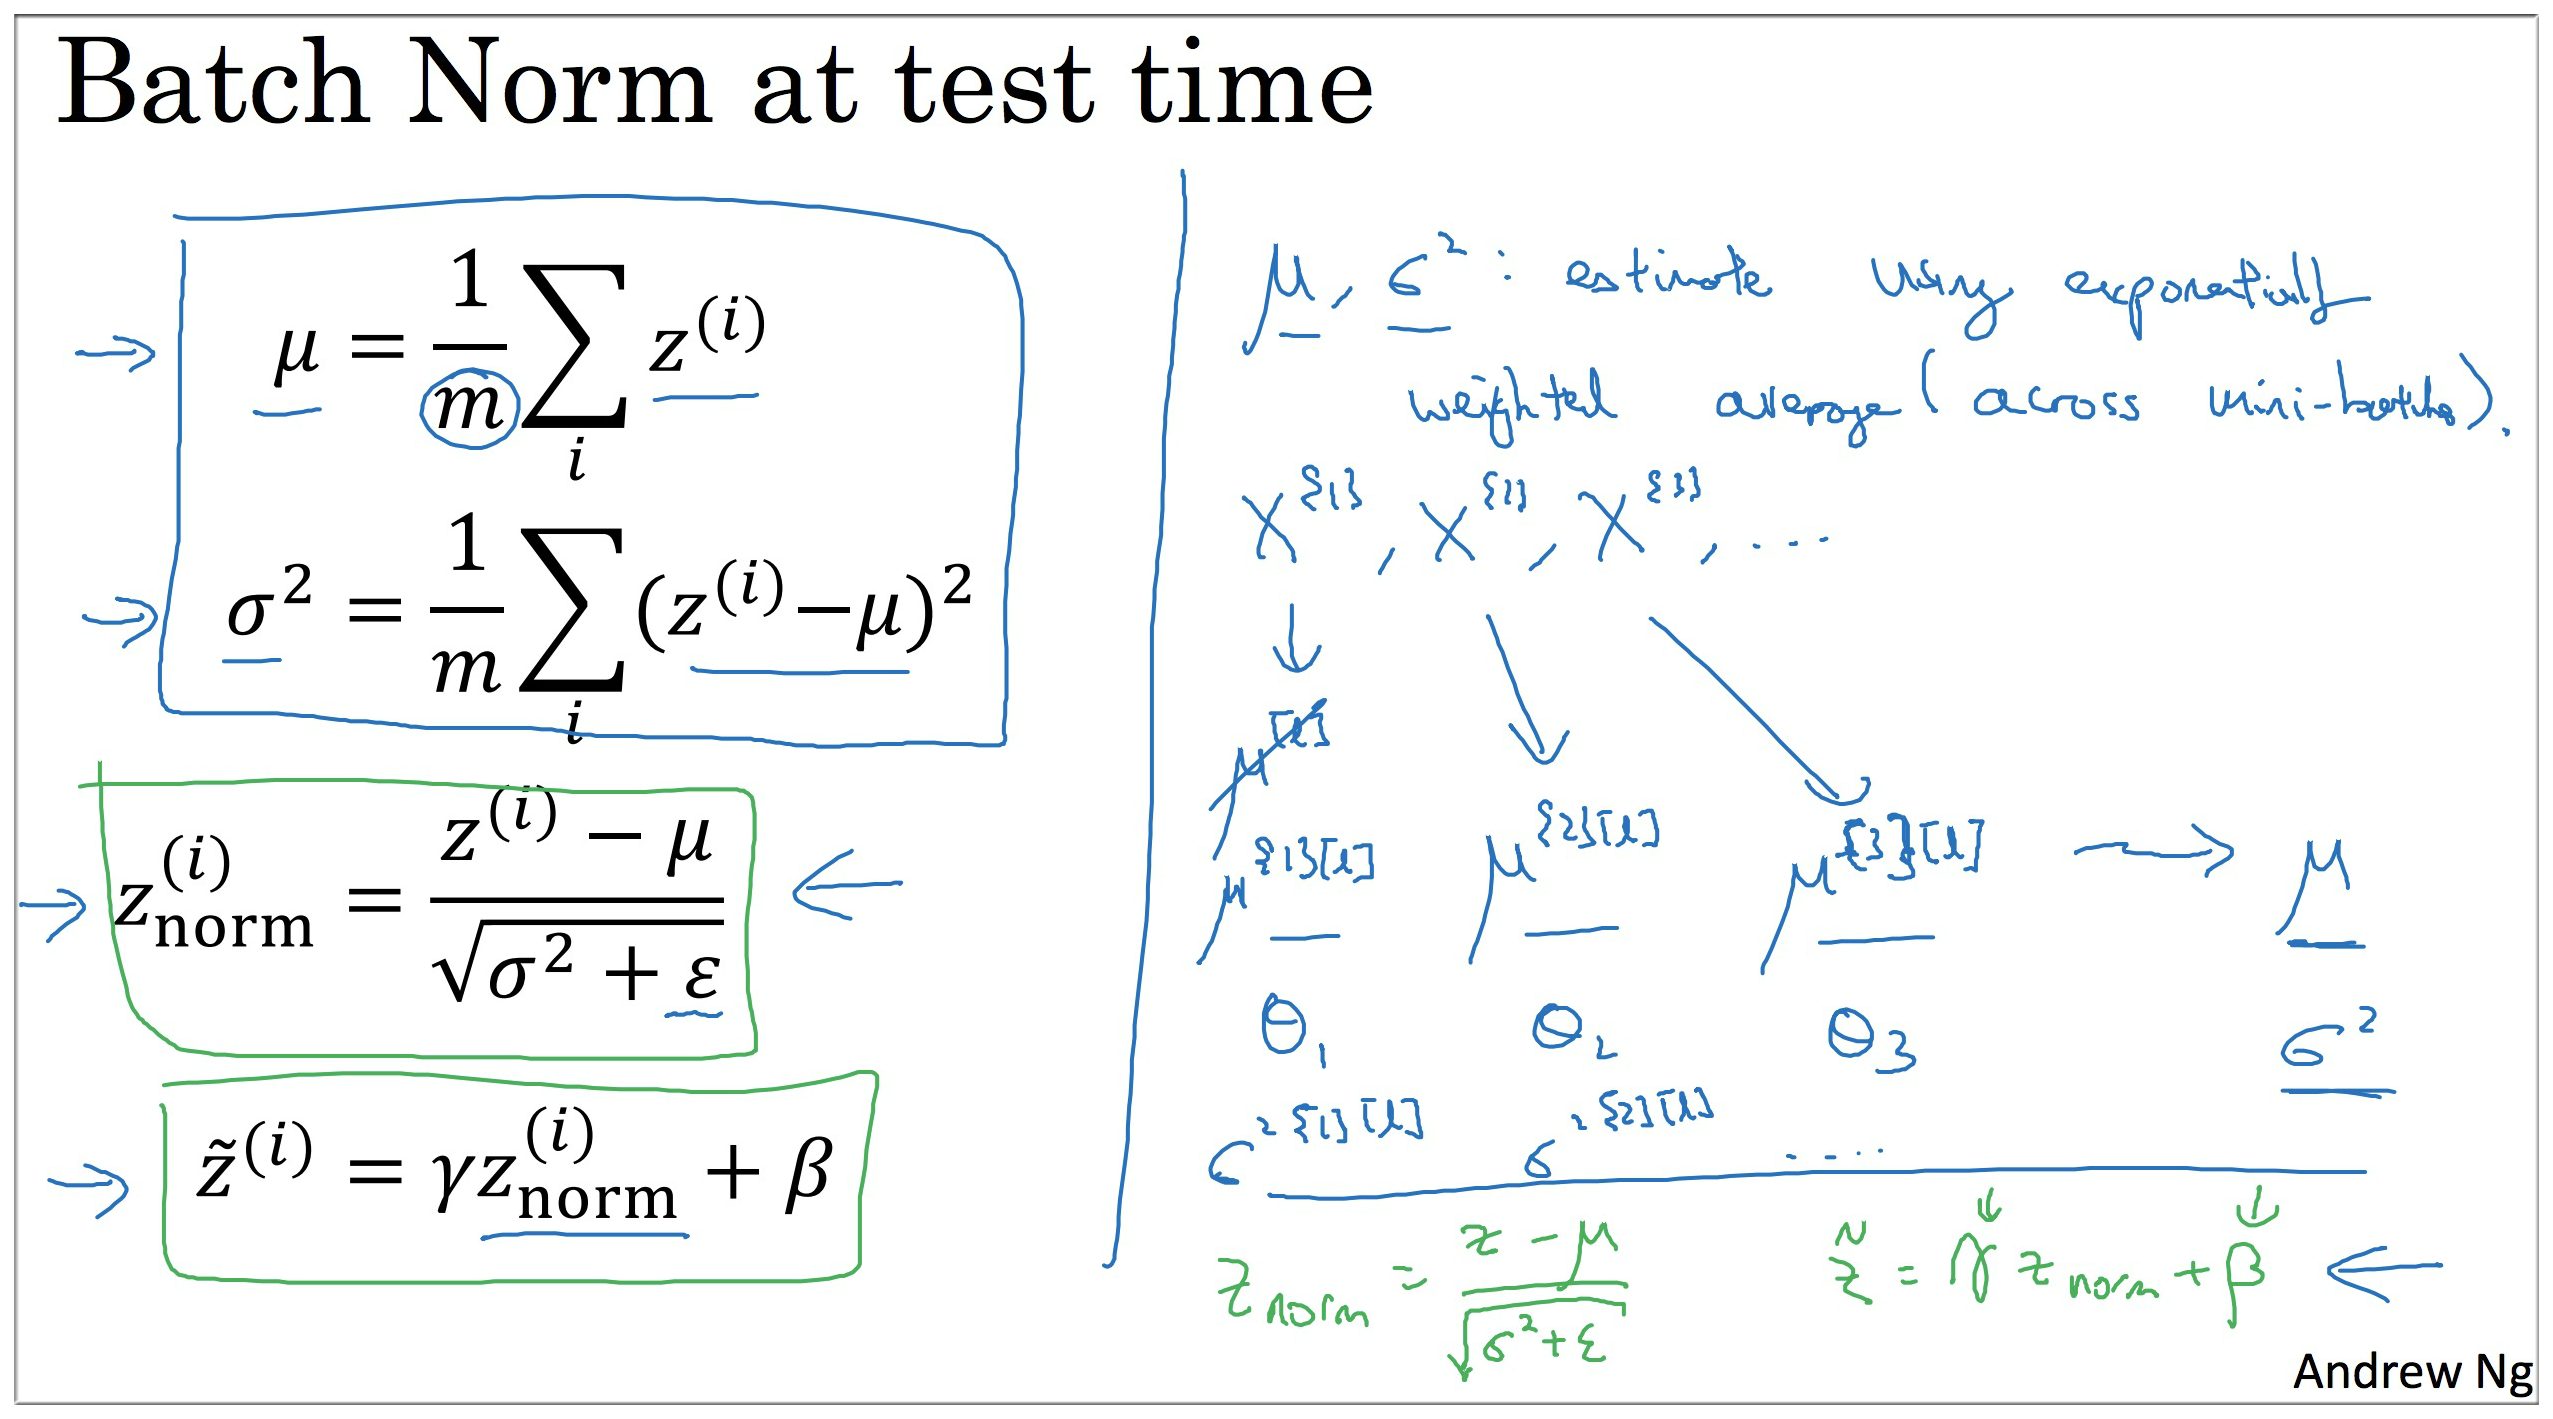 Batch Norm at test time
μ = 1/m ∑_i z^(i)
σ² = 1/m ∑_i (z^(i) − μ)²
z_norm^(i) = (z^(i) − μ) / √(σ² + ε)
z̃^(i) = γ z_norm^(i) + β
μ, σ² : estimate using exponentially
weighted average (across mini-batches).
X^{1}, X^{2}, X^{3}, ....
μ^[l]
μ^{1}[l] μ^{2}[l] μ^{3}[l] → μ
θ₁ θ₂ θ₃ σ²
σ²^{1}[l] σ²^{2}[l] ....
z_norm = (z − μ) / √(σ² + ε) z̃ = γ z_norm + β
Andrew Ng